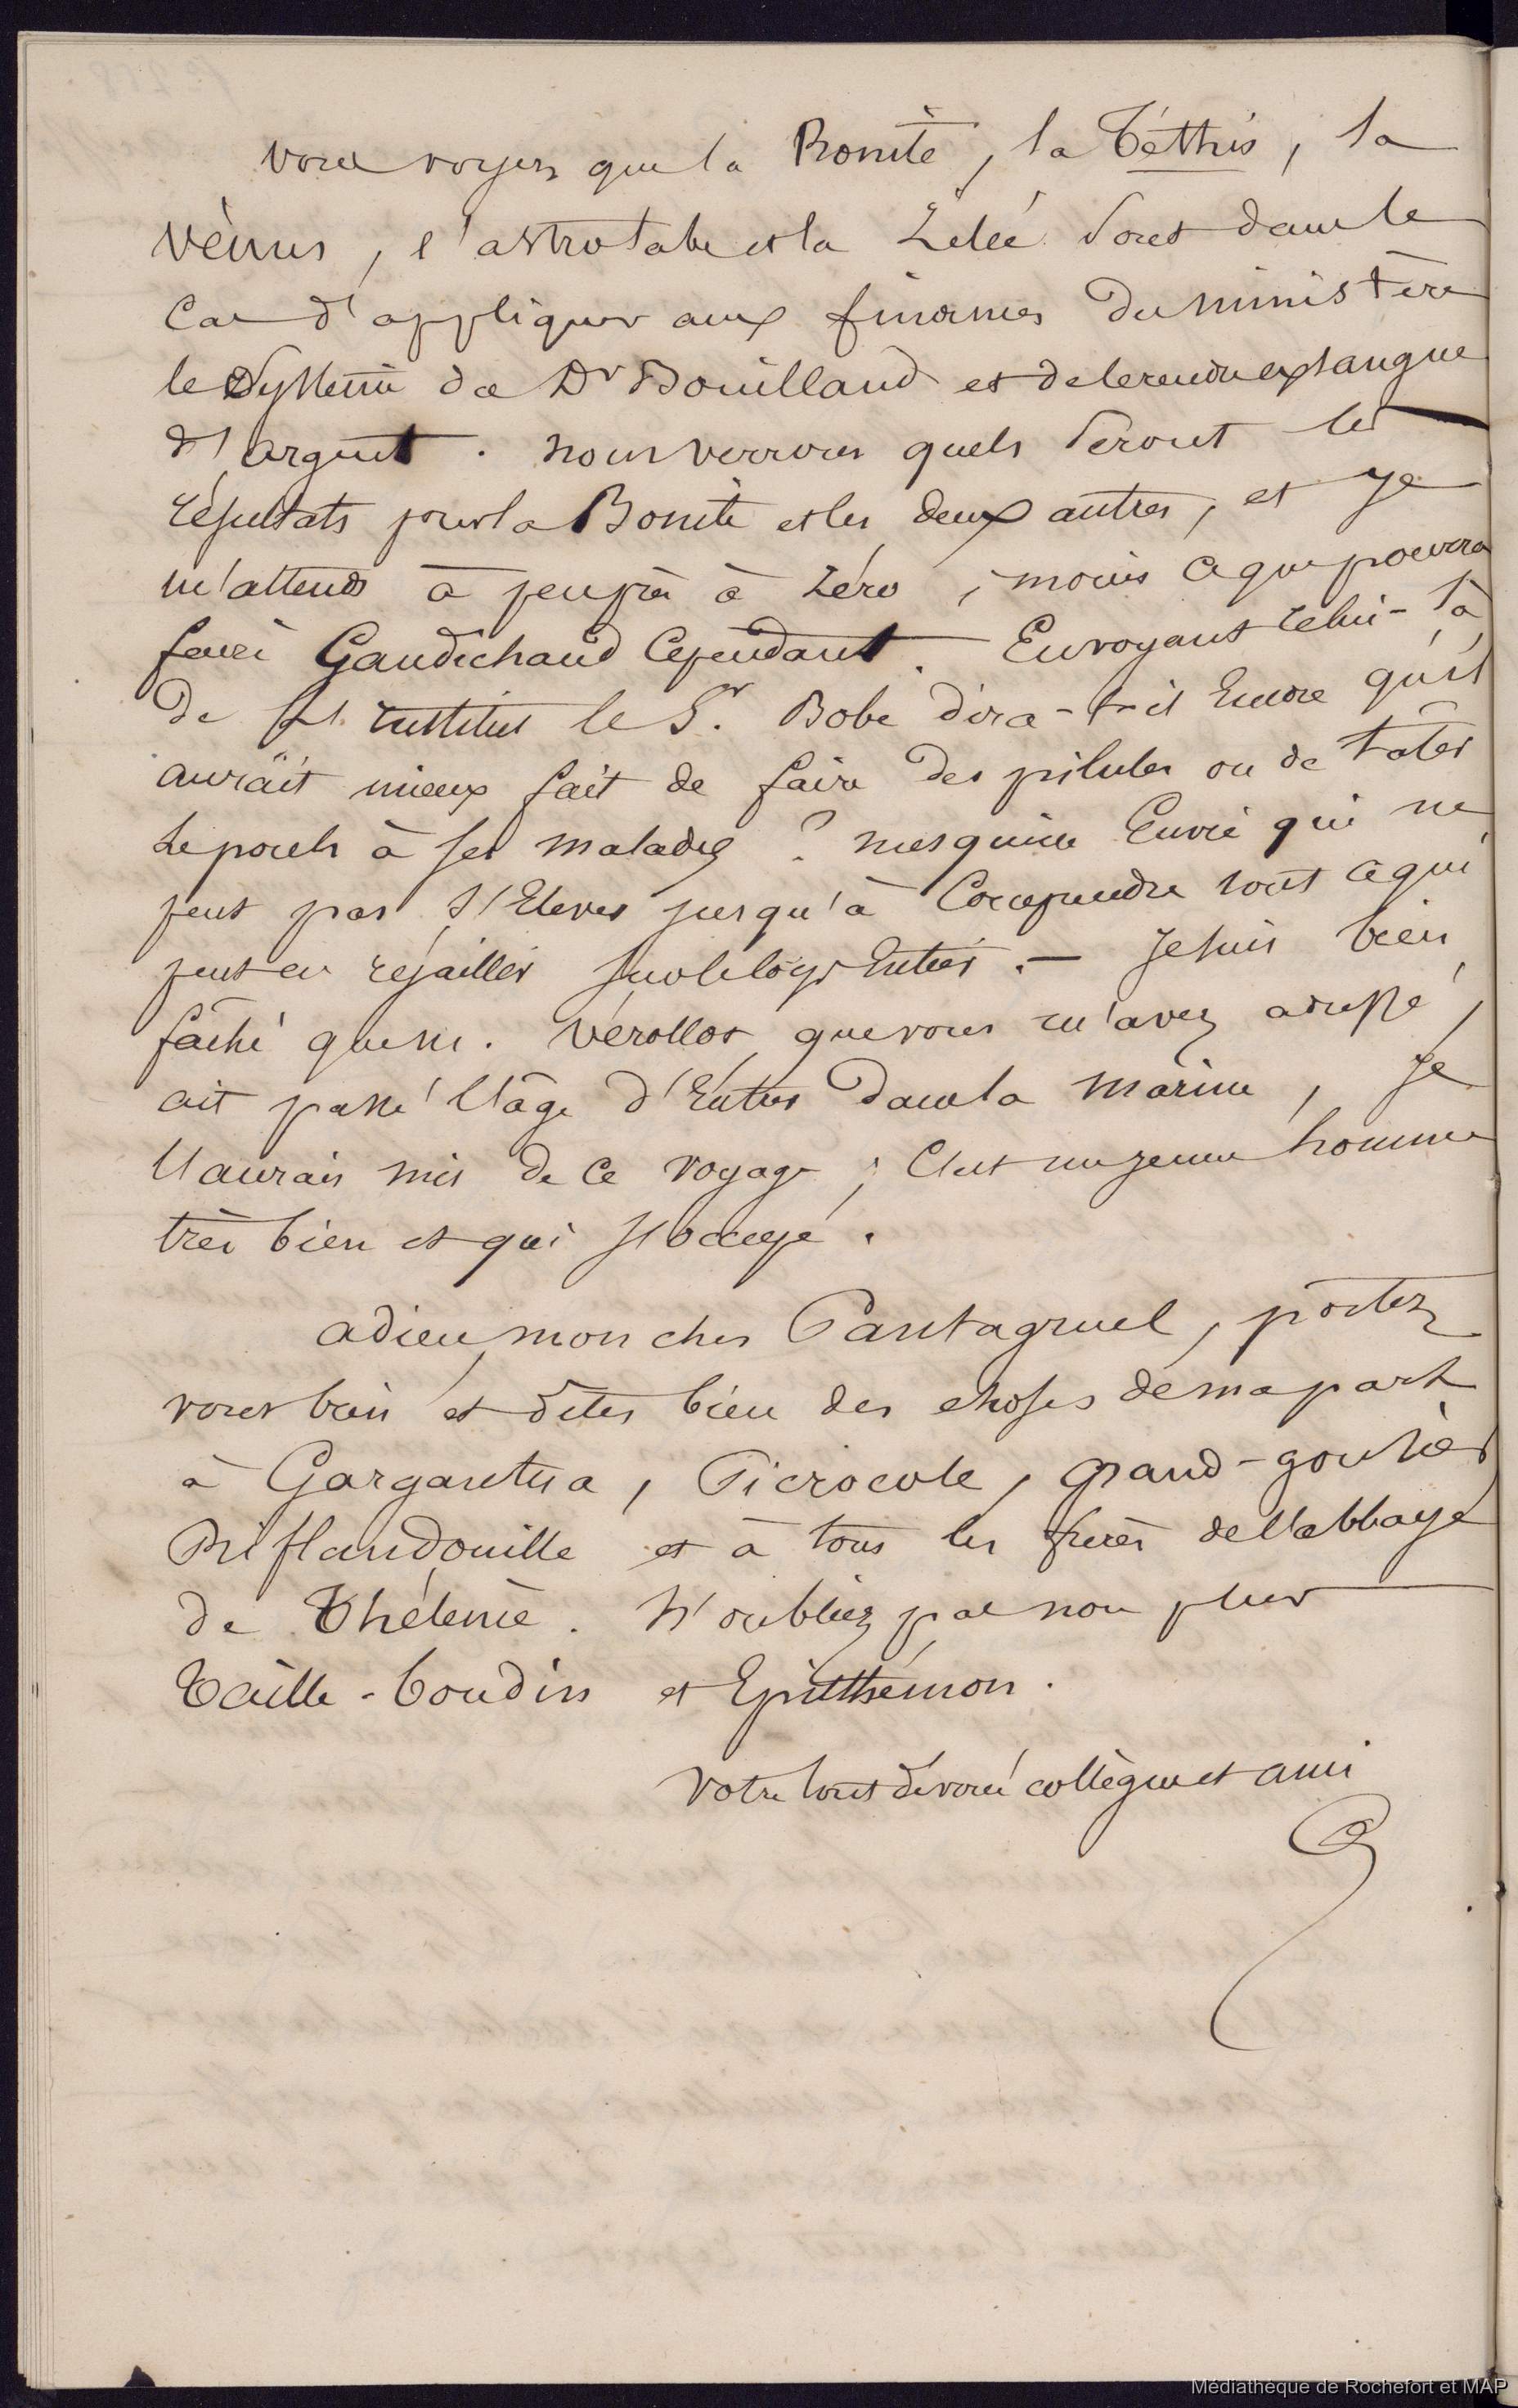 vous voyez que la Bonite, la Téthis, la
vénus, l'astrolabe et la Zélée sont dans le
cas d'appliquer aux finances du ministère
le système du Dr Bouillaud et de le rendre exsangue
d'argent. nous verrons quels seront les
résultats pour la Bonite et les deux autres, et je
m'attends à peu près à zéro, moins ce que pourra
faire Gaudichaud cependant. En voyant celui-là
de l'institut le Sr. Bobe dira-t-il encore qu'il
aurait mieux fait de faire des pilules ou de tâter
le pouls à ses malades ? mesquine Envie qui ne
peut pas s'Elever jusqu'à Comprendre tout ce qui
peut en rejaillir sur le corps Entier. — Je suis bien
fâché que m. Vérollot que vous m'avez adressé,
ait passé l'âge d'Entrer dans la marine, je
l'aurais mis de ce voyage ; C'est un jeune homme
très bien et qui s'occupe.
adieu mon cher Pantagruel, portez
vous bien et dites bien des choses de ma part
à Gargantua, Picrocole, grand-gousier
Riflandouille et à tous les frères de l'abbaye
de Thélème. N'oubliez pas non plus
Taille-boudin et Episthémon.
votre tout dévoué collègue et ami
Médiathèque de Rochefort et MAP